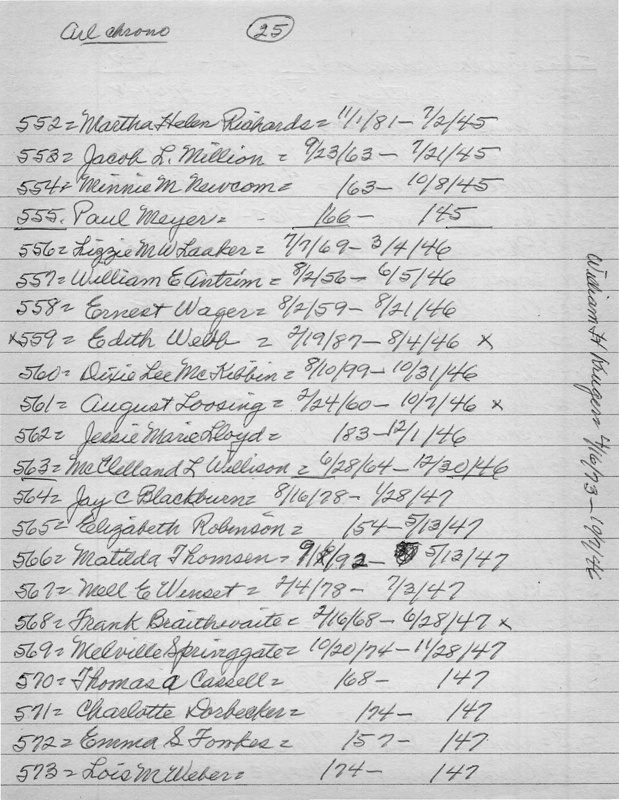 Arl chrono 25
552 = Martha Helen Richards = 11/1/81 - 7/2/45
553 = Jacob L. Million = 9/23/63 - 7/21/45
554 = Minnie M Newcom = /63 - 10/8/45
555. Paul Meyer = - /66 - /45
556 = Lizzie M W Laaker = 7/7/69 - 3/4/46
557 = William E Antrim = 8/2/56 - 6/5/46
558 = Ernest Wager = 8/2/59 - 8/21/46
x559 = Edith Webb = 2/19/87 - 8/4/46 x
560 = Dixie Lee McKibbin = 8/10/99 - 10/31/46
561 = August Loosing = 2/24/60 - 10/7/46 x
562 = Jessie Marie Lloyd = /83 - 12/1/46
563 = McClelland L Willison = 6/28/64 - 12/30/46
564 = Jay C Blackburn = 8/16/78 - 1/28/47
565 = Elizabeth Robinson = /54 - 5/13/47
566 = Matilda Thomsen = /92 - 5/13/47
567 = Nell E Winset = 2/4/78 - 7/2/47
568 = Frank Braithwaite = 2/16/68 - 6/28/47 x
569 = Melville Springgate = 10/20/74 - 11/28/47
570 = Thomas A Cassell = /68 - /47
571 = Charlotte Dorbecker = /74 - /47
572 = Emma S Fowkes = /57 - /47
573 = Lois M Weber = /74 - /47
William H Kruger = 4/6/73 - 10/7/46